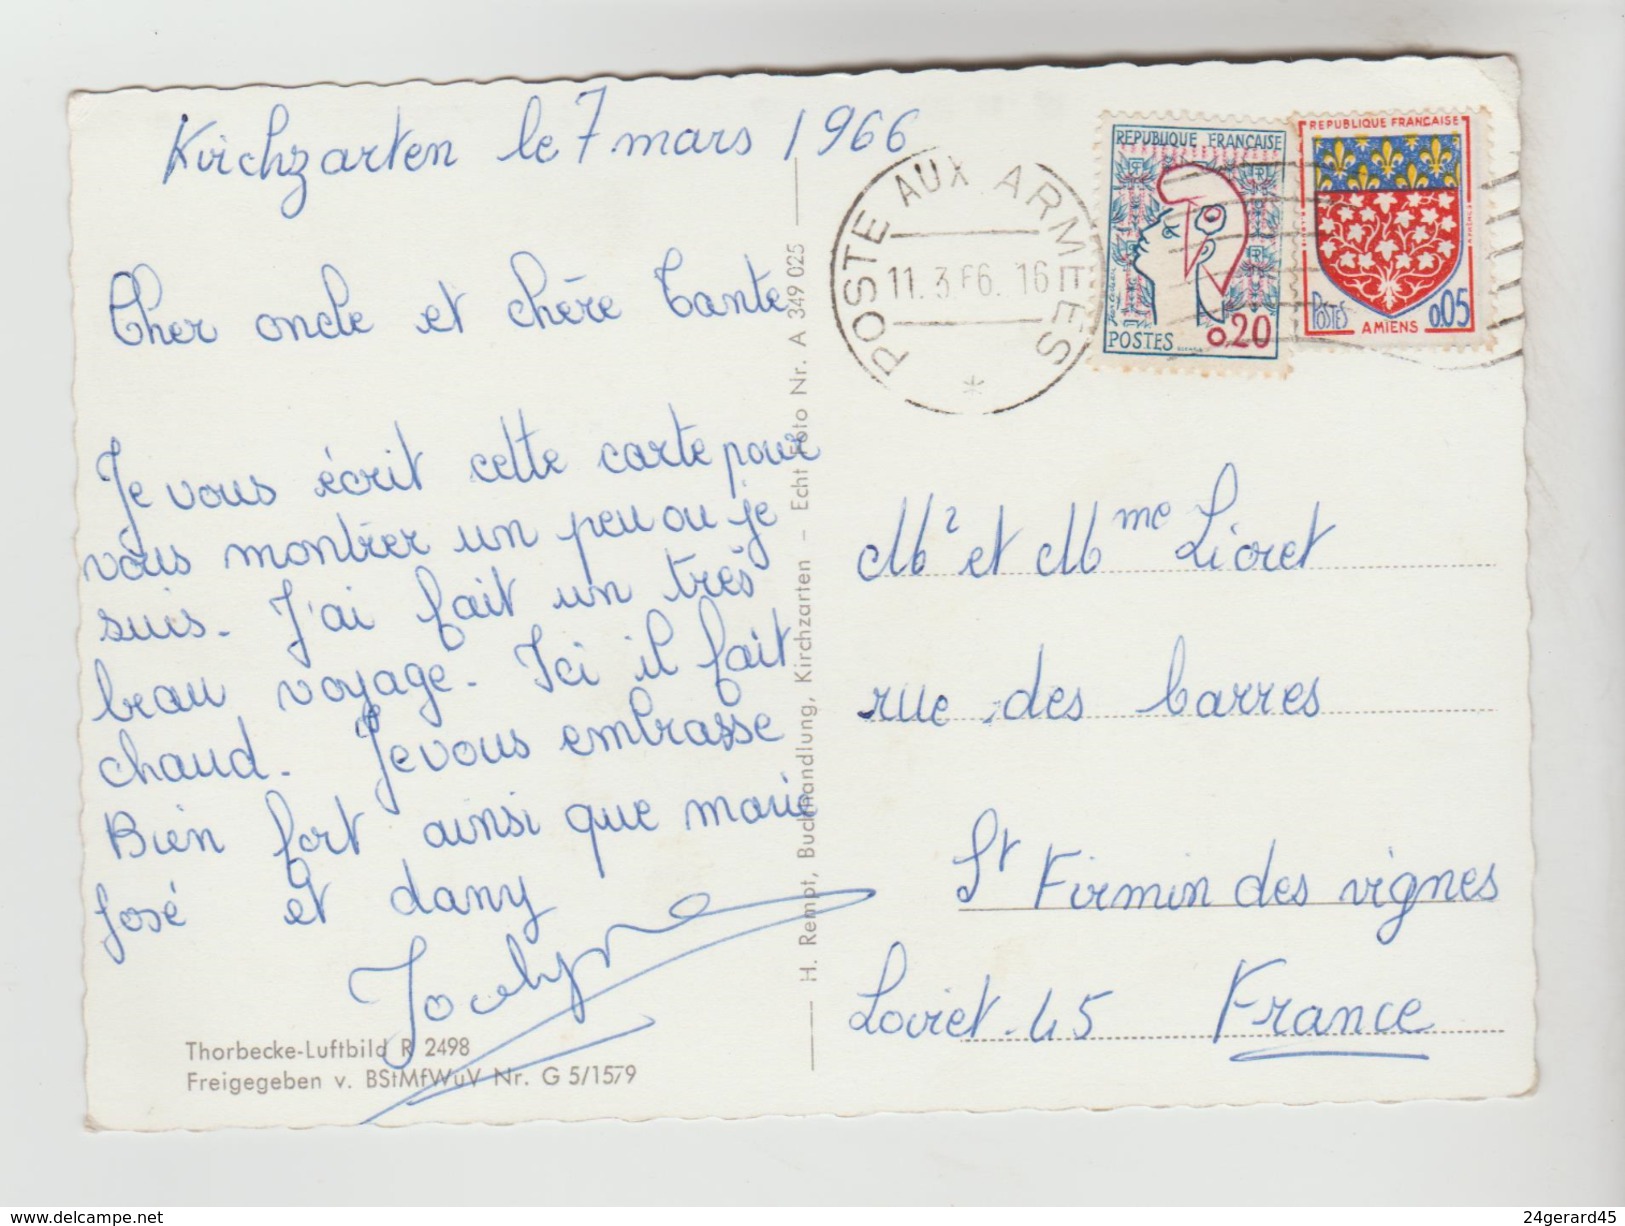 Kirchzarten le 7 mars 1966
Cher oncle et chère tante
Je vous écrit cette carte pour
vous montrer un peu ou je
suis. J'ai fait un très
beau voyage. Ici il fait
chaud. Je vous embrasse
Bien fort ainsi que marie
José et dany
Jocelyne
Thorbecke-Luftbild R 2498
Freigegeben v. BStMfWuV Nr. G 5/1579
H. Rempt, Buchhandlung, Kirchzarten – Echt Foto Nr. A 349 025
POSTE AUX ARMEES
11. 3. 66. 16
*
REPUBLIQUE FRANÇAISE
POSTES
0,20
REPUBLIQUE FRANÇAISE
POSTES
AMIENS
0,05
Mr et Mme Lioret
rue des barres
St Firmin des vignes
Loiret. 45 France
www.delcampe.net
24gerard45